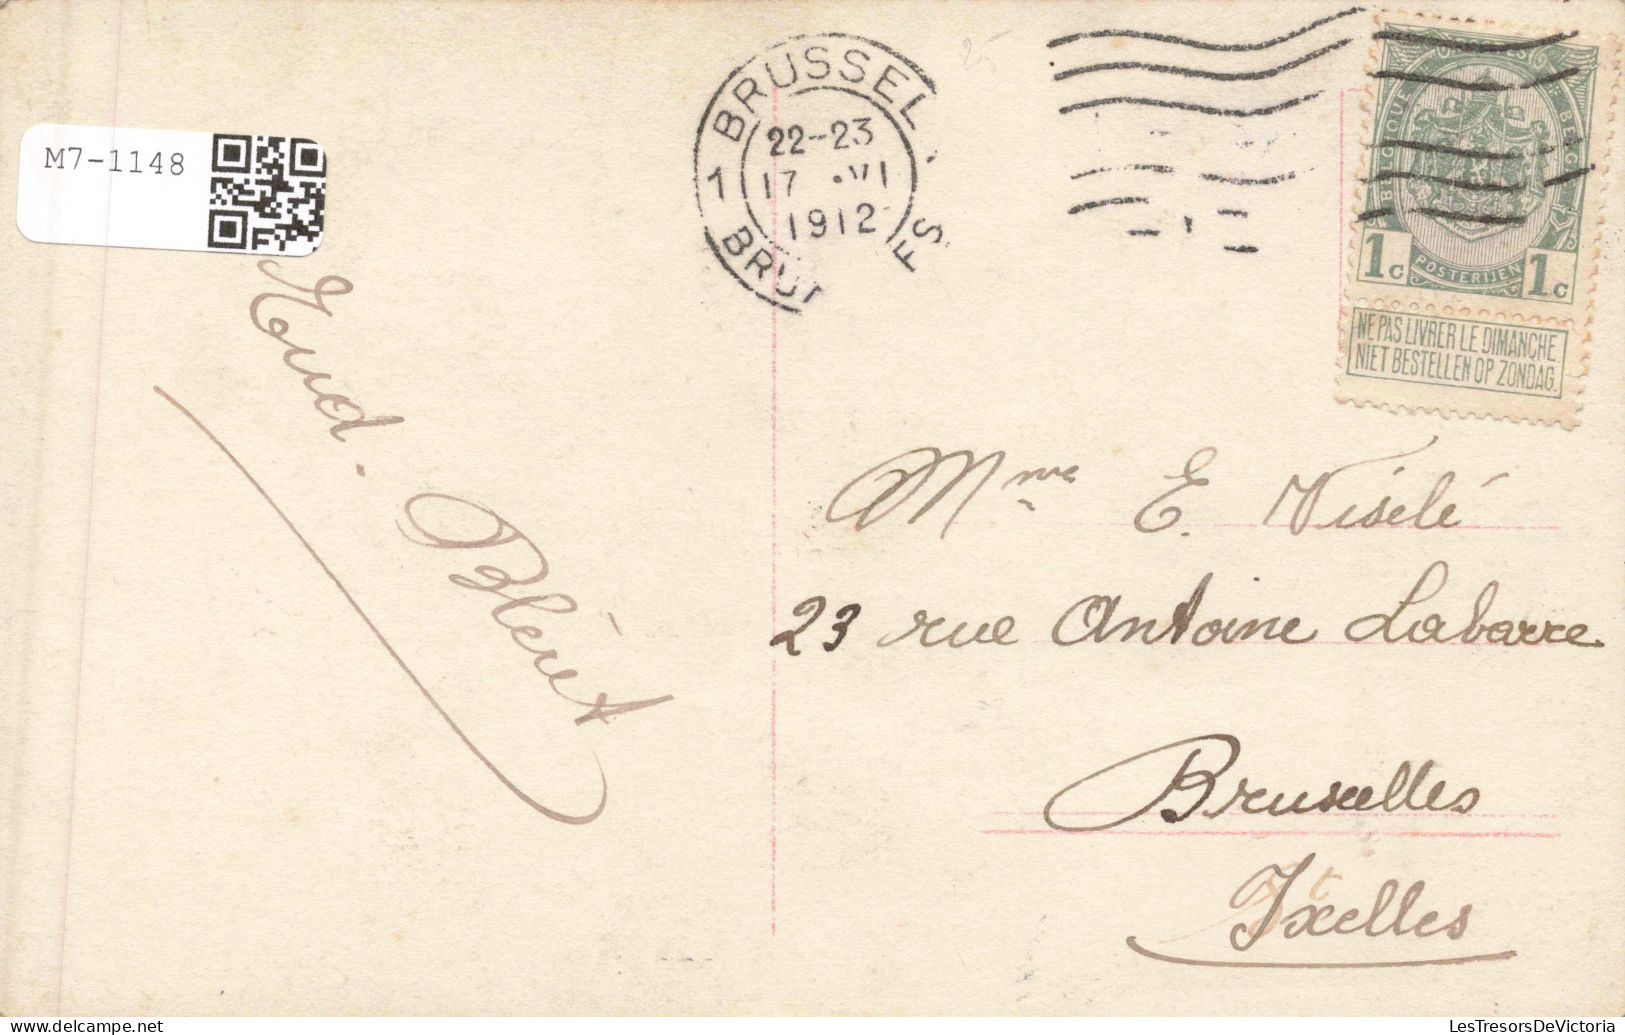 M7-1148
BRUSSEL
22-23
1 17 VI
1912
BRU
BELGIQUE BELGIË
1c POSTERIJEN 1c
NE PAS LIVRER LE DIMANCHE
NIET BESTELLEN OP ZONDAG.
Mme E. Viselé
23 rue Antoine Labarre
Bruxelles
Ixelles
delcampe.net
LesTresorsDeVictoria